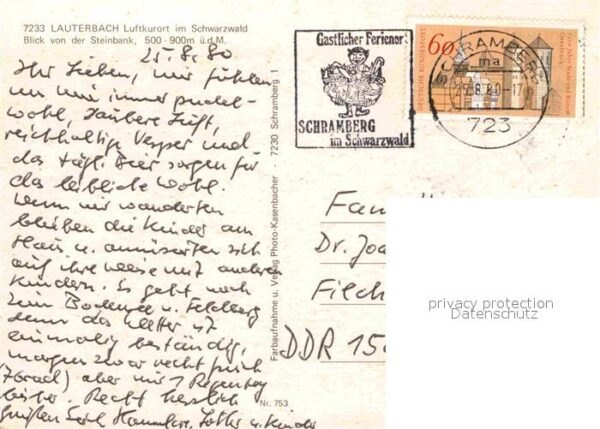 7233 LAUTERBACH Luftkurort im Schwarzwald
Blick von der Steinbank, 500 - 900m ü.d.M.
25.8.80
Ihr Lieben, wir fühlen
uns immer pudel-
wohl, saubere Luft,
reichhaltige Vesper und
das tägl. Bier sorgen für
das leibliche Wohl.
Wenn wir wanderten
bleiben die Kinder am
Haus u. amüsierten sich
auf ihre Weise mit anderen
Kindern. Es geht noch
zum Bodensee u. Feldberg
denn das Wetter ist
einmalig beständig,
morgens zwar recht frisch
aber nur 1 Regentag
bisher. Recht herzlich
grüßen Euch Hannelore, Lothar u. Kinder
Farbaufnahme u. Verlag Photo-Kasenbacher · 7230 Schramberg 1
Nr. 753
Gastlicher Ferienort
SCHRAMBERG
im Schwarzwald
DEUTSCHE BUNDESPOST
60
SCHRAMBERG
ma
25.8.80-17
723
Fam
Dr. Joa
Filch
DDR 150
privacy protection
Datenschutz